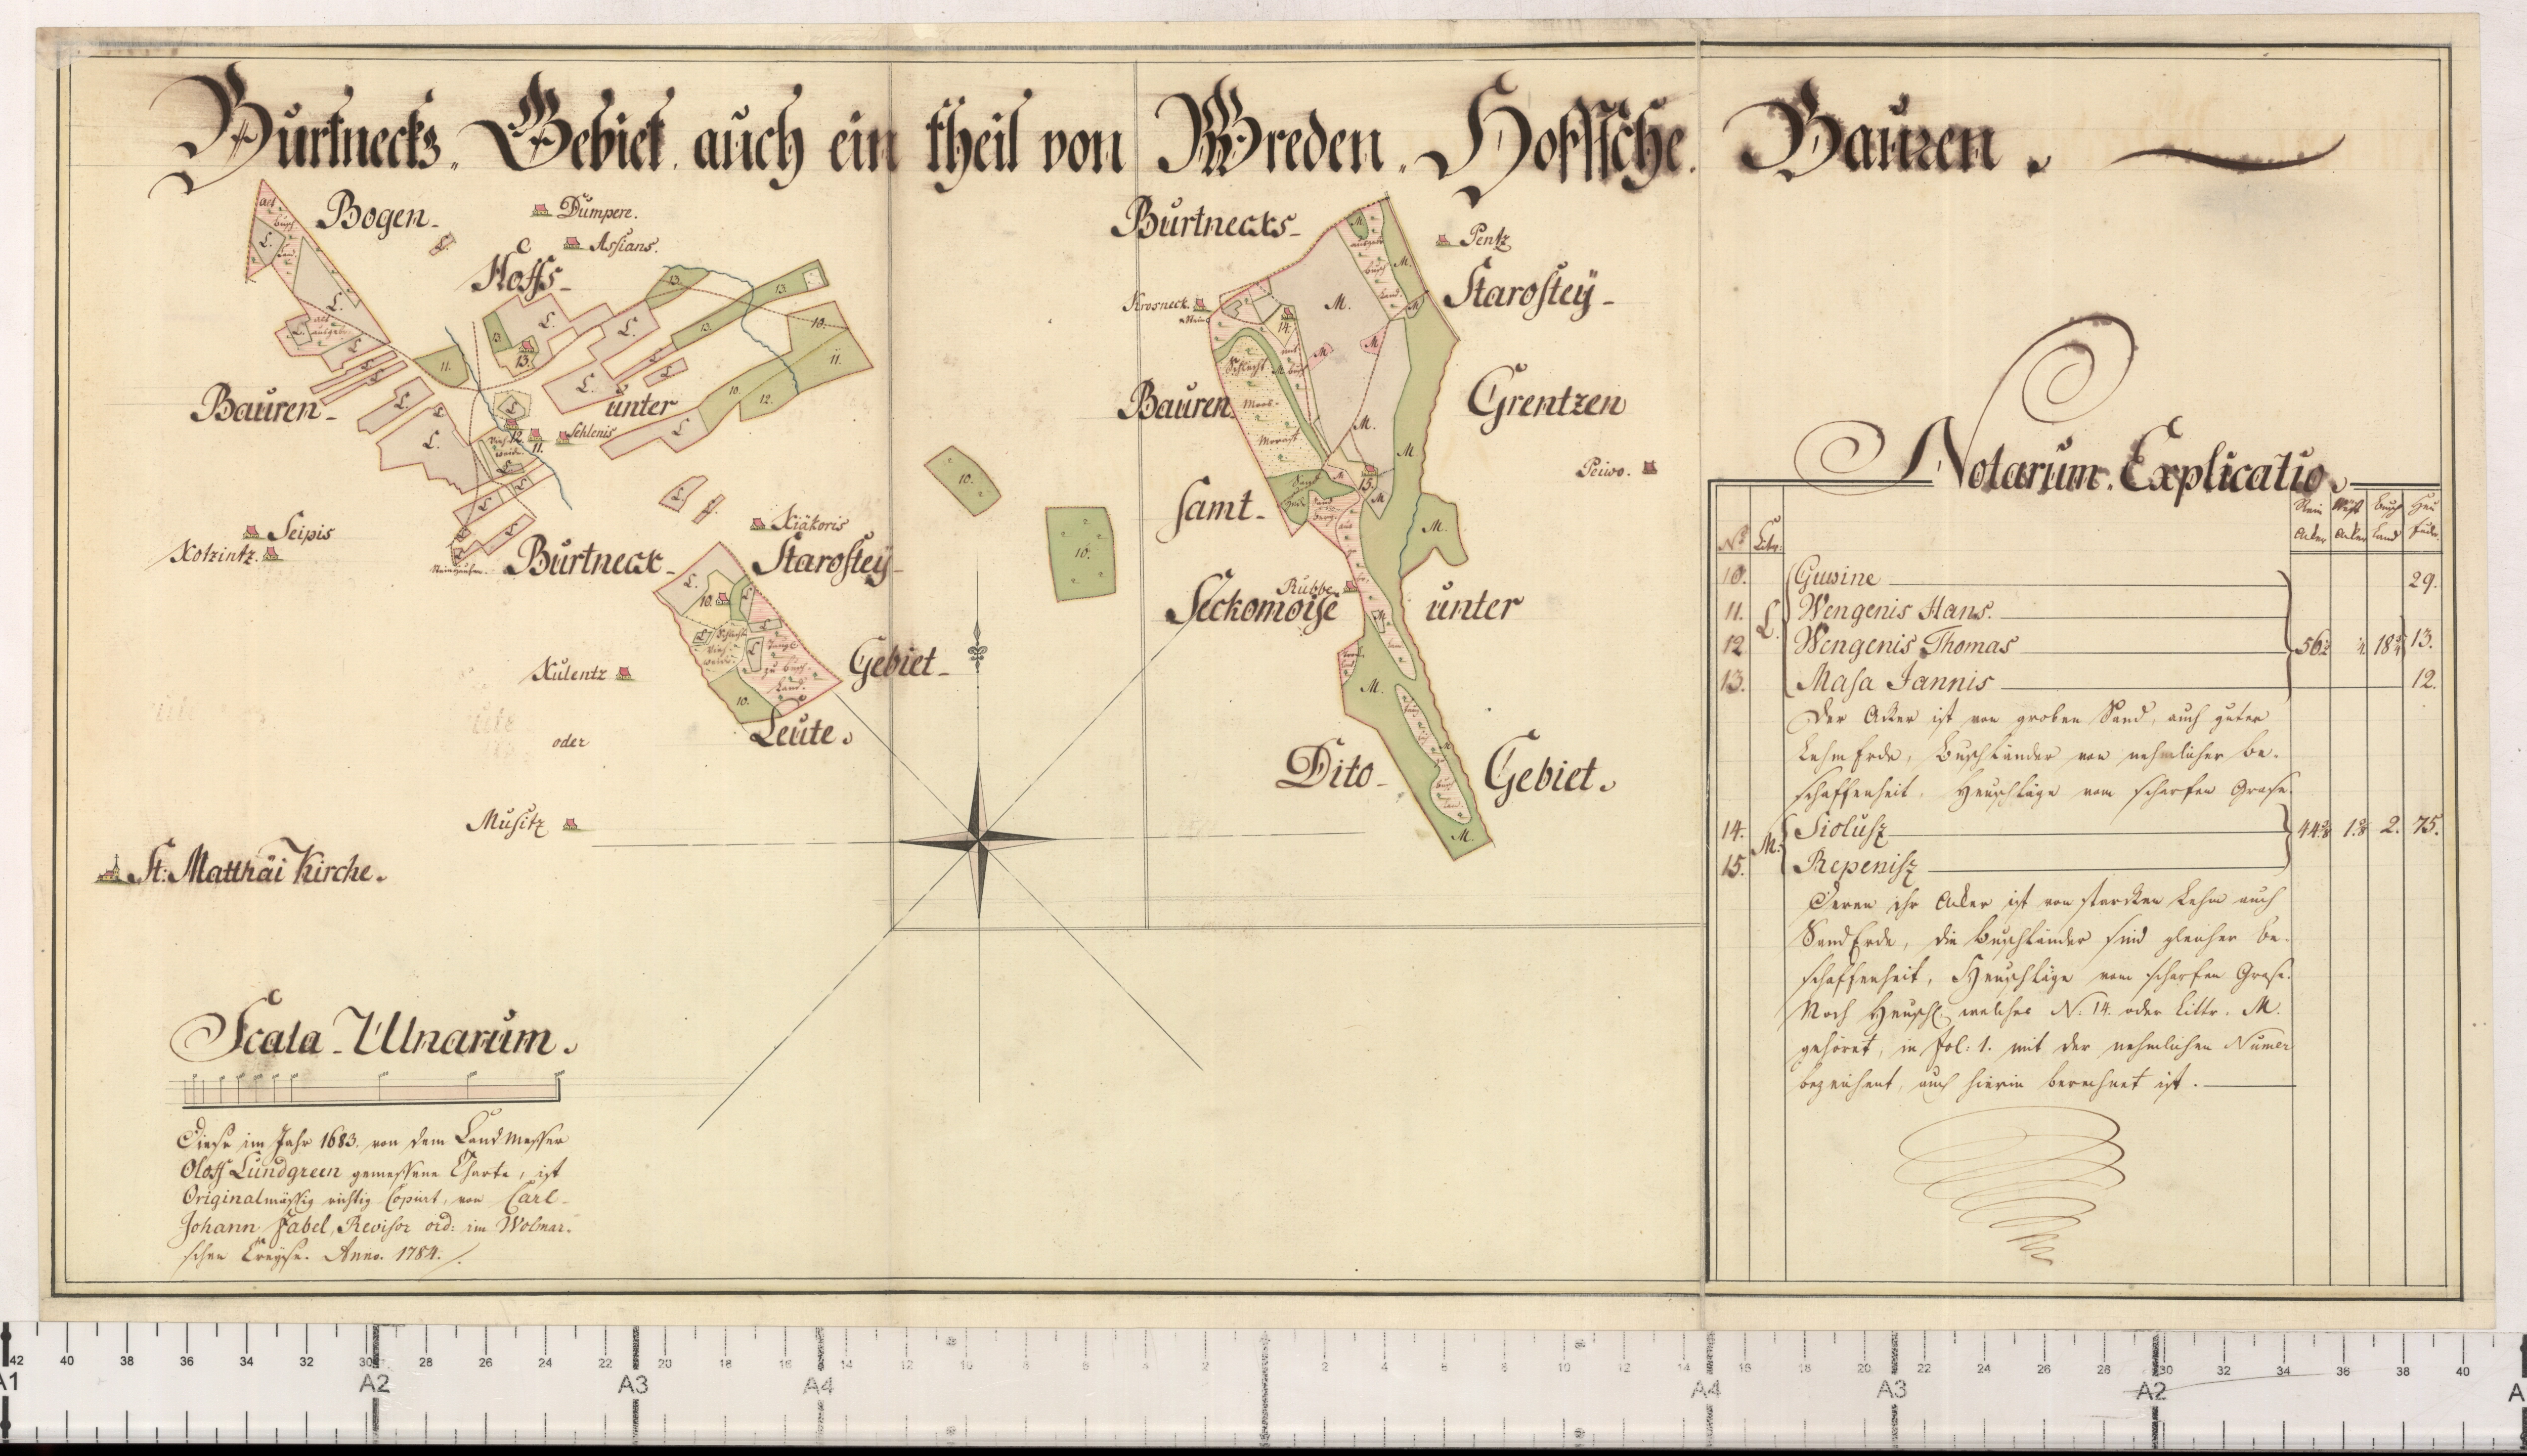 Burtnecks. Gebiet auch ein theil von Wreden. Hoffsche. Bauren.
Bogen
Dumperr.
Assians.
Hoffs
Bauren
unter
Sehlenis
Seipis
Kotzintz.
Burtneck
Kiäkoris
Starostey
Gebiet
Leute.
Kulentz
oder
Musitz
St: Matthäi Kirche.
Burtnecks
Pentz
Krosneck
Starostey
Bauren
Grentzen
Peiwo.
Schlecht
Moras
Morast
samt
Rubbe
Seckomoise
unter
Dito
Gebiet.
Scala Ulnarum.
Diese im Jahr 1683. von dem Land Messer
Oloff Lundgreen gemessene Charte, ist
Originalmässig richtig Copiirt, von Carl
Johann Fabel, Revisor ord: im Wolmar-
schen Creyse. Anno. 1784.
Notarum. Explicatio.
No Littr:
Busch Land
Heu Fuder
10. Guwine 29.
11. Wengenis Hans.
L.
12. Wengenis Thomas 13.
13. Masa Jannis 12.
Der Acker ist von groben Sand, auch guter
Lehm Erde, Buschländer von nehmlicher be-
schaffenheit, Heuschläge vom scharfen Grase.
14. Siolusz 2. 75.
M.
15. Repenisz
Deren ihr Acker ist von starcken Lehm auch
Sand Erde, die Buschländer sind gleicher be-
schaffenheit, Heuschläge vom scharfen Grase.
Noch Heuschl. welches N: 14. oder Littr. M.
gehöret, in Fol: 1. mit der nehmlichen Numer
bezeichent, auch hierin berechnet ist.
42 40 38 36 34 32 30 28 26 24 22 20 18 16 14 12 10 8 6 4 2 2 4 6 8 10 12 14 16 18 20 22 24 26 28 30 32 34 36 38 40
A1 A2 A3 A4 A4 A3 A2 A